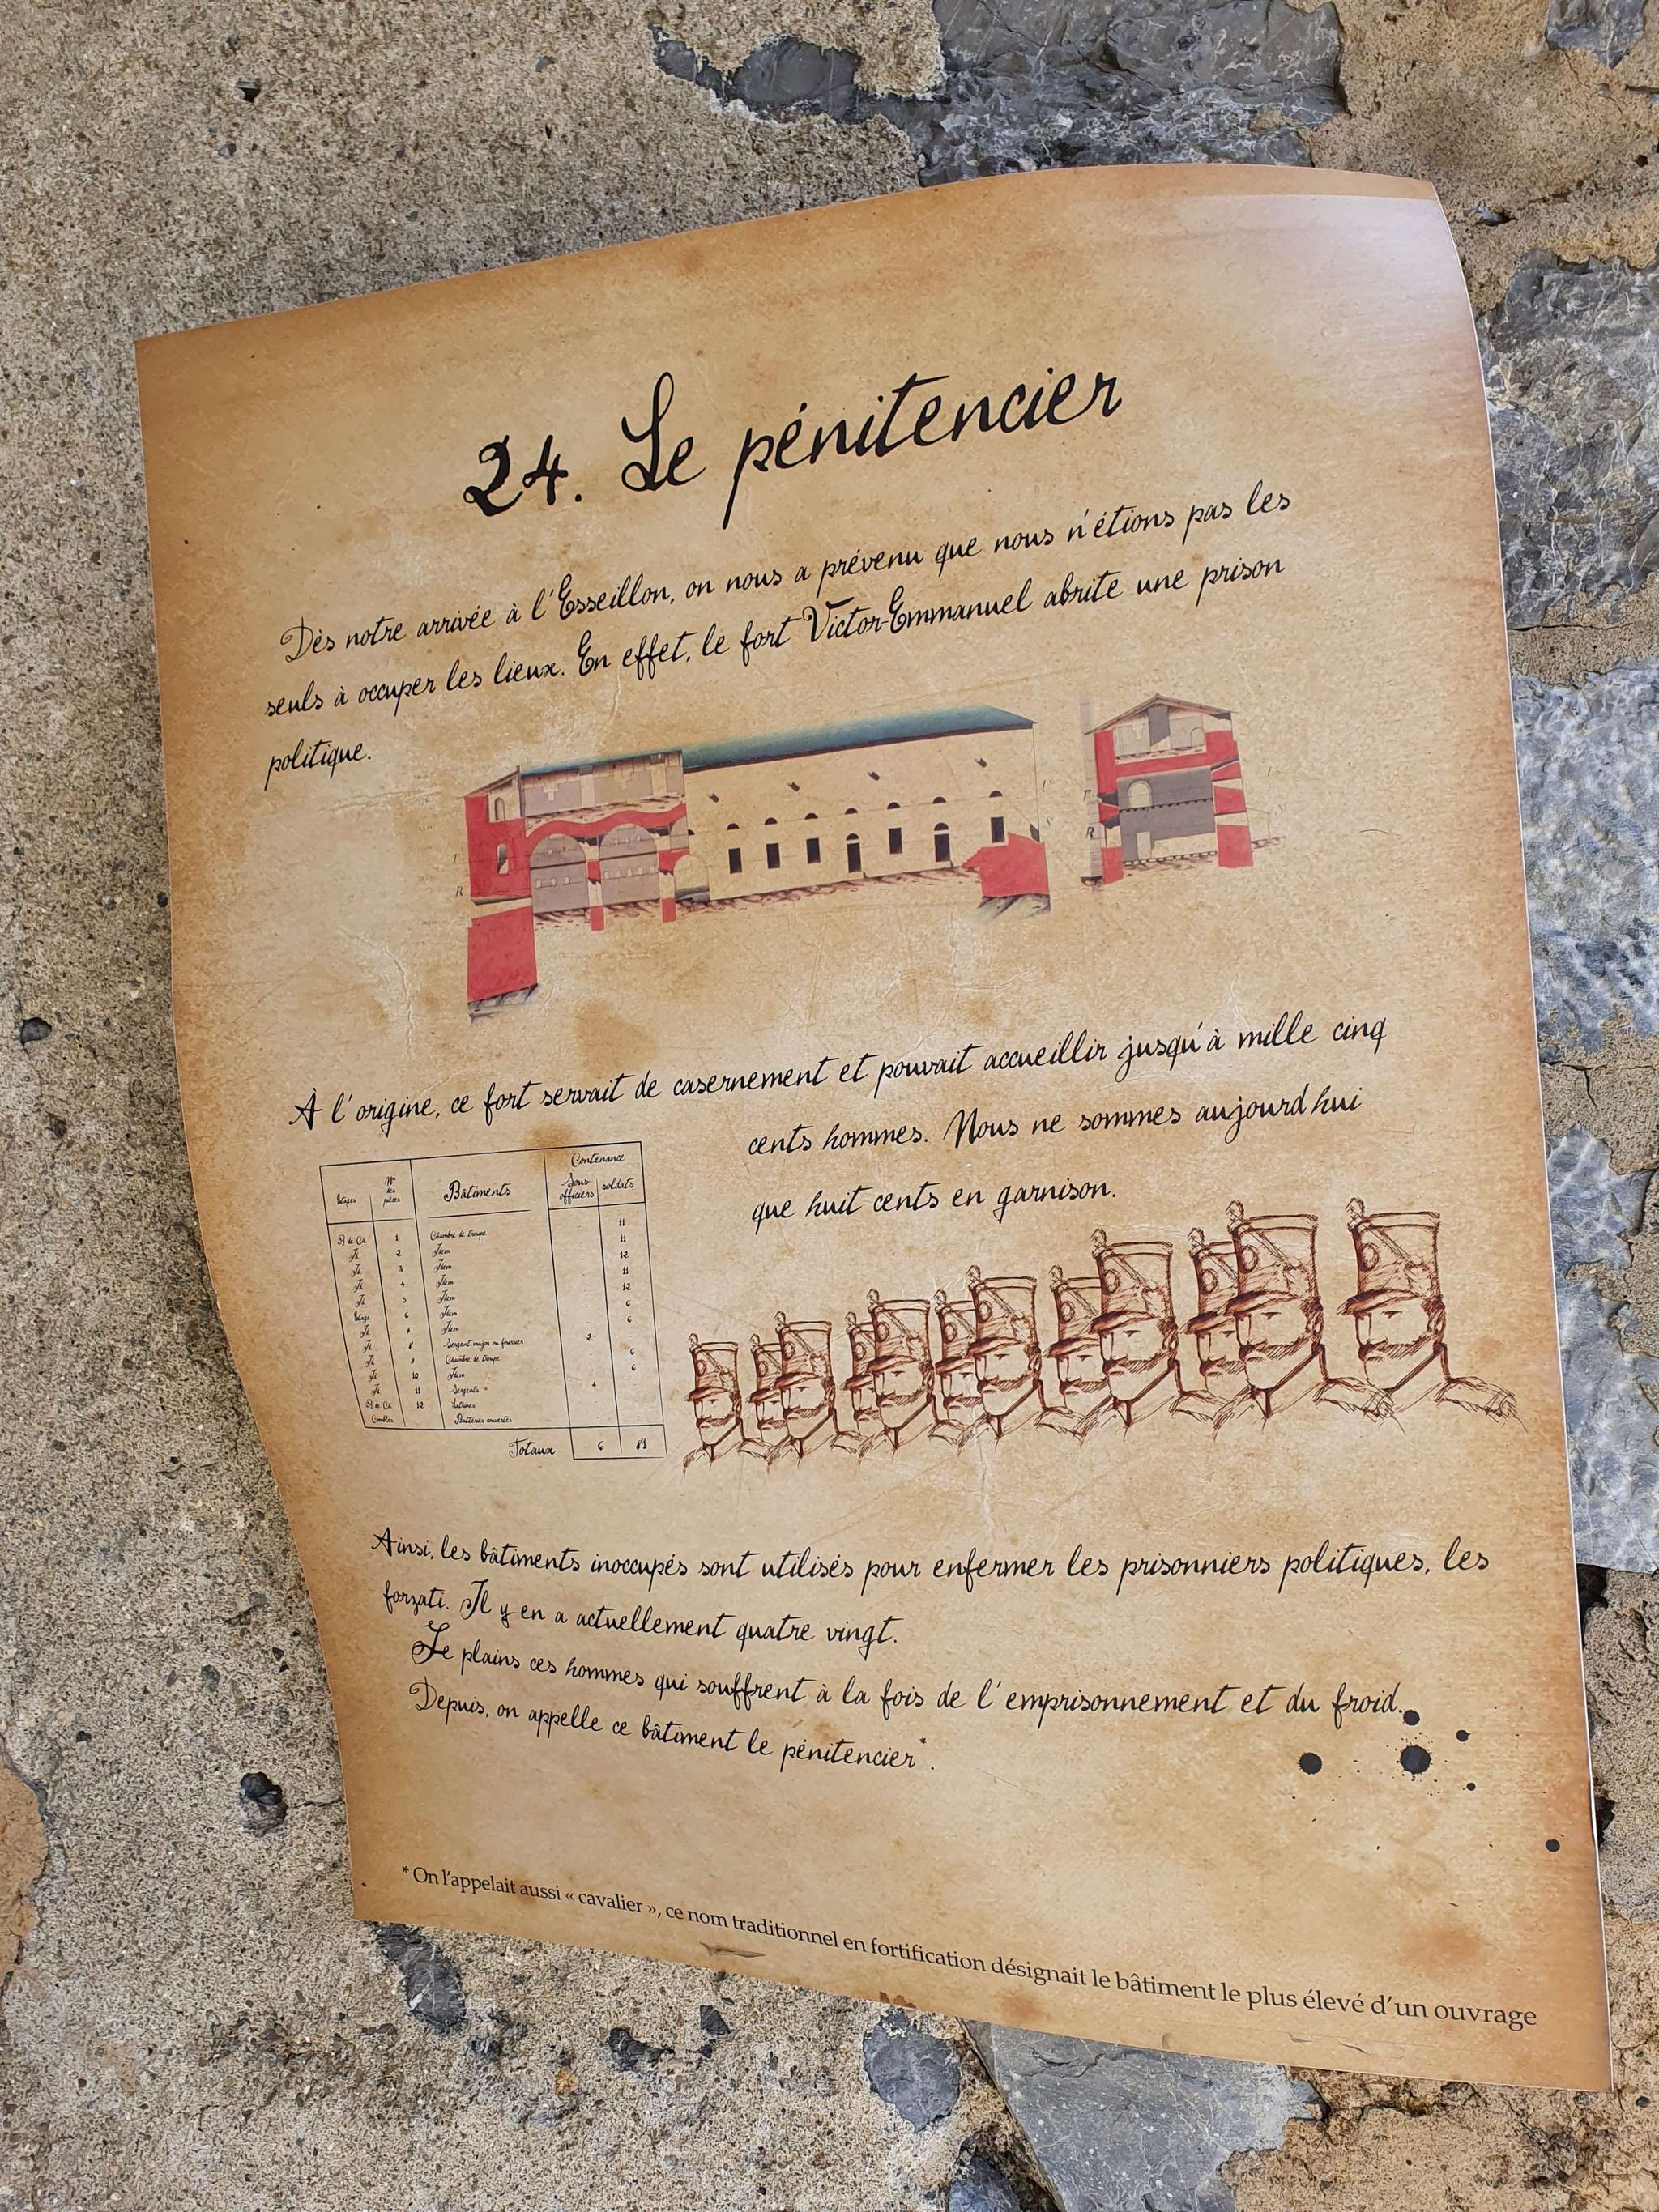 24. Le pénitencier
Dès notre arrivée à l'Esseillon, on nous a prévenu que nous n'étions pas les
seuls à occuper les lieux. En effet, le fort Victor-Emmanuel abrite une prison
politique.
T
R
R
À l'origine, ce fort servait de casernement et pouvait accueillir jusqu'à mille cinq
cents hommes. Nous ne sommes aujourd'hui
que huit cents en garnison.
Etages N° des pièces Bâtiments Contenance
Sous officiers soldats
R de Cd 1 Chambre de troupe 11
Id 2 Idem 11
Id 3 Idem 12
Id 4 Idem 11
Id 5 Idem 12
Etage 6 Idem 6
Id 7 Idem 6
Id 8 Sergent major ou fourrier 2
Id 9 Chambre de troupe 6
Id 10 Idem 6
Id 11 Sergents 4
R de Cd 12 Latrines
Combles Batteries couvertes
Totaux 6 81
Ainsi, les bâtiments inoccupés sont utilisés pour enfermer les prisonniers politiques, les
forzati. Il y en a actuellement quatre vingt.
Je plains ces hommes qui souffrent à la fois de l'emprisonnement et du froid.
Depuis, on appelle ce bâtiment le pénitencier*.
* On l'appelait aussi « cavalier », ce nom traditionnel en fortification désignait le bâtiment le plus élevé d'un ouvrage